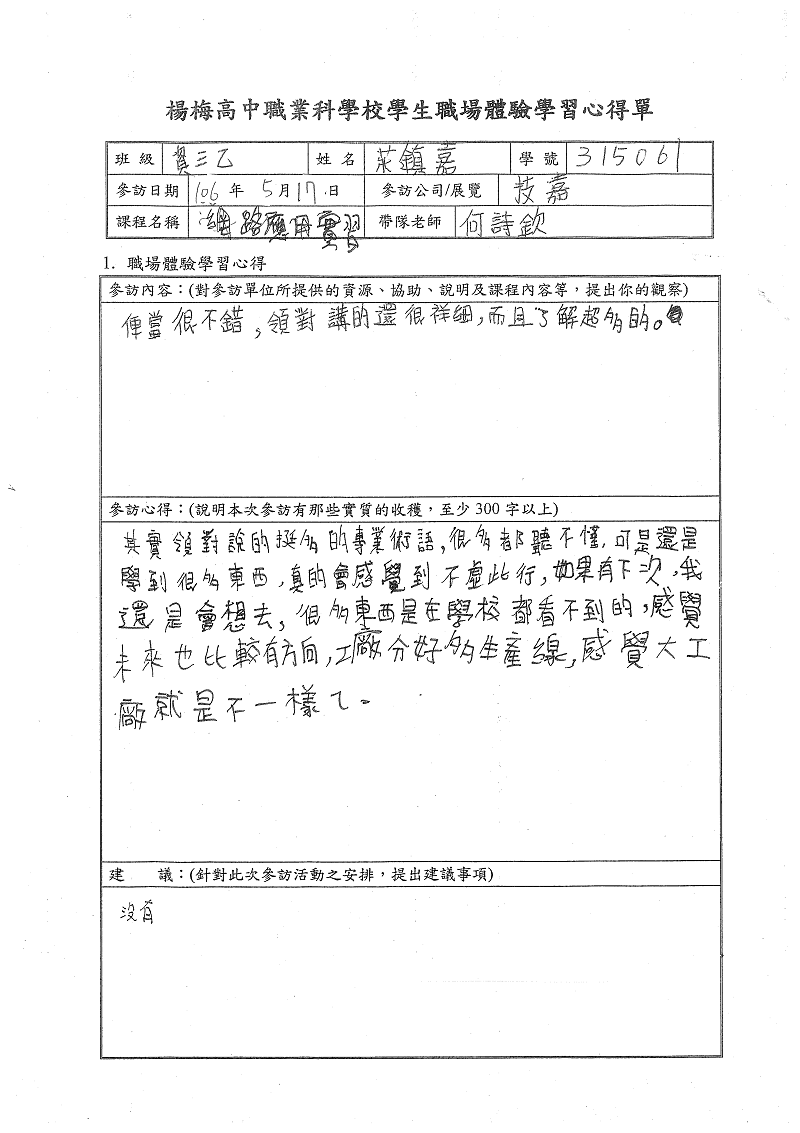 楊梅高中職業科學校學生職場體驗學習心得單
班級 資三乙 姓名 鎮嘉 學號 315061
參訪日期 106年5月17日 參訪公司/展覽 技嘉
課程名稱 網路應用實習 帶隊老師 何詩欽
1. 職場體驗學習心得
參訪內容：(對參訪單位所提供的資源、協助、說明及課程內容等，提出你的觀察)
便當很不錯，領對講的還很祥細，而且了解超多的。
參訪心得：(說明本次參訪有那些實質的收穫，至少300字以上)
其實領對說的挺多的專業術語，很多都聽不懂，可是還是
學到很多東西，真的會感覺到不虛此行，如果有下次，我
還是會想去，很多東西是在學校都看不到的，感覺
未來也比較有方向，工廠分好多生產線，感覺大工
廠就是不一樣ㄟ。
建　　議：(針對此次參訪活動之安排，提出建議事項)
沒有